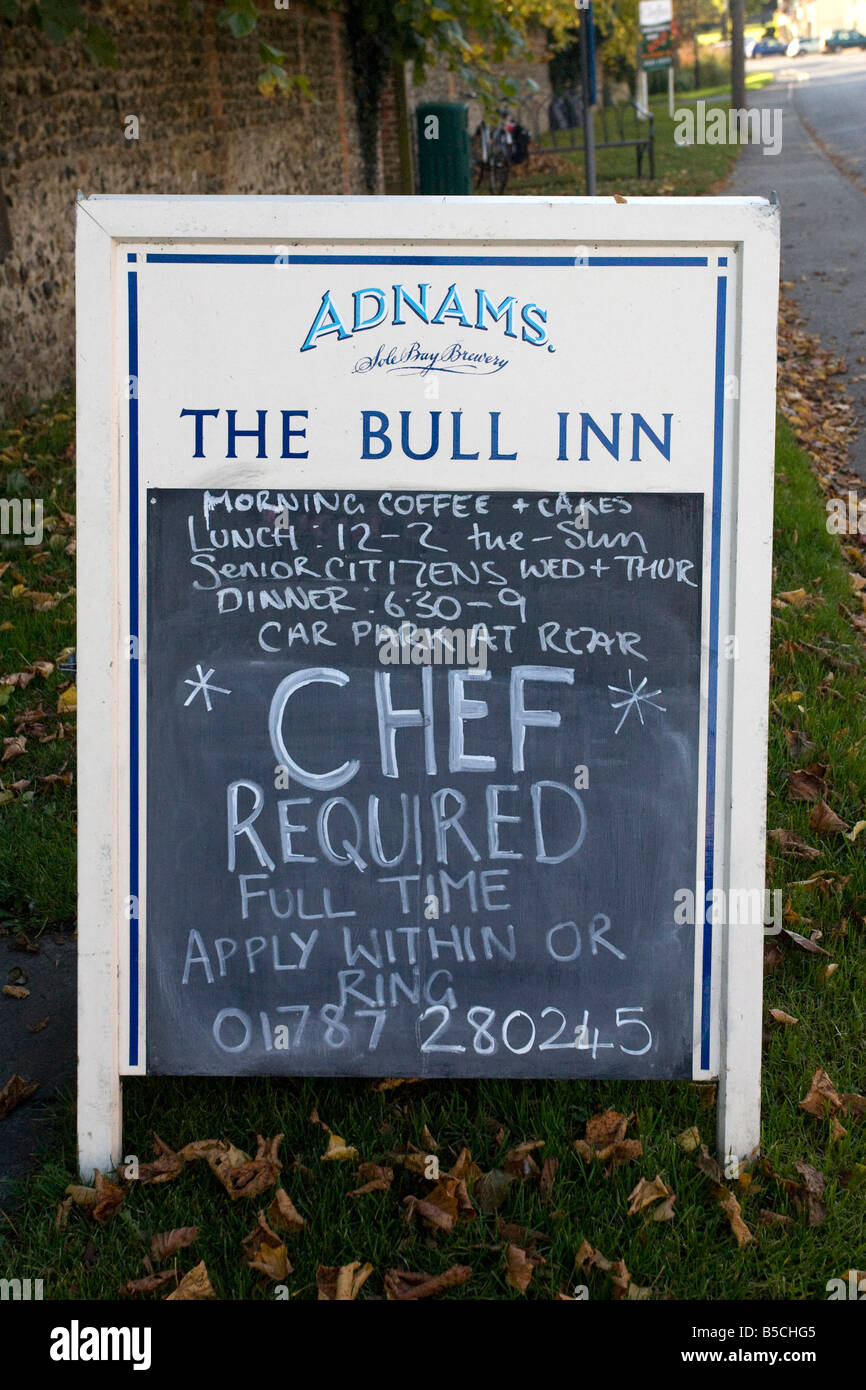 ADNAMS.
Sole Bay Brewery
THE BULL INN
MORNING COFFEE + CAKES
LUNCH : 12-2 tue-Sun
SENIOR CITIZENS WED + THUR
DINNER : 6.30-9
CAR PARK AT REAR
* CHEF *
REQUIRED
FULL TIME
APPLY WITHIN OR
RING
01787 280245
alamy
Image ID: B5CHG5
www.alamy.com